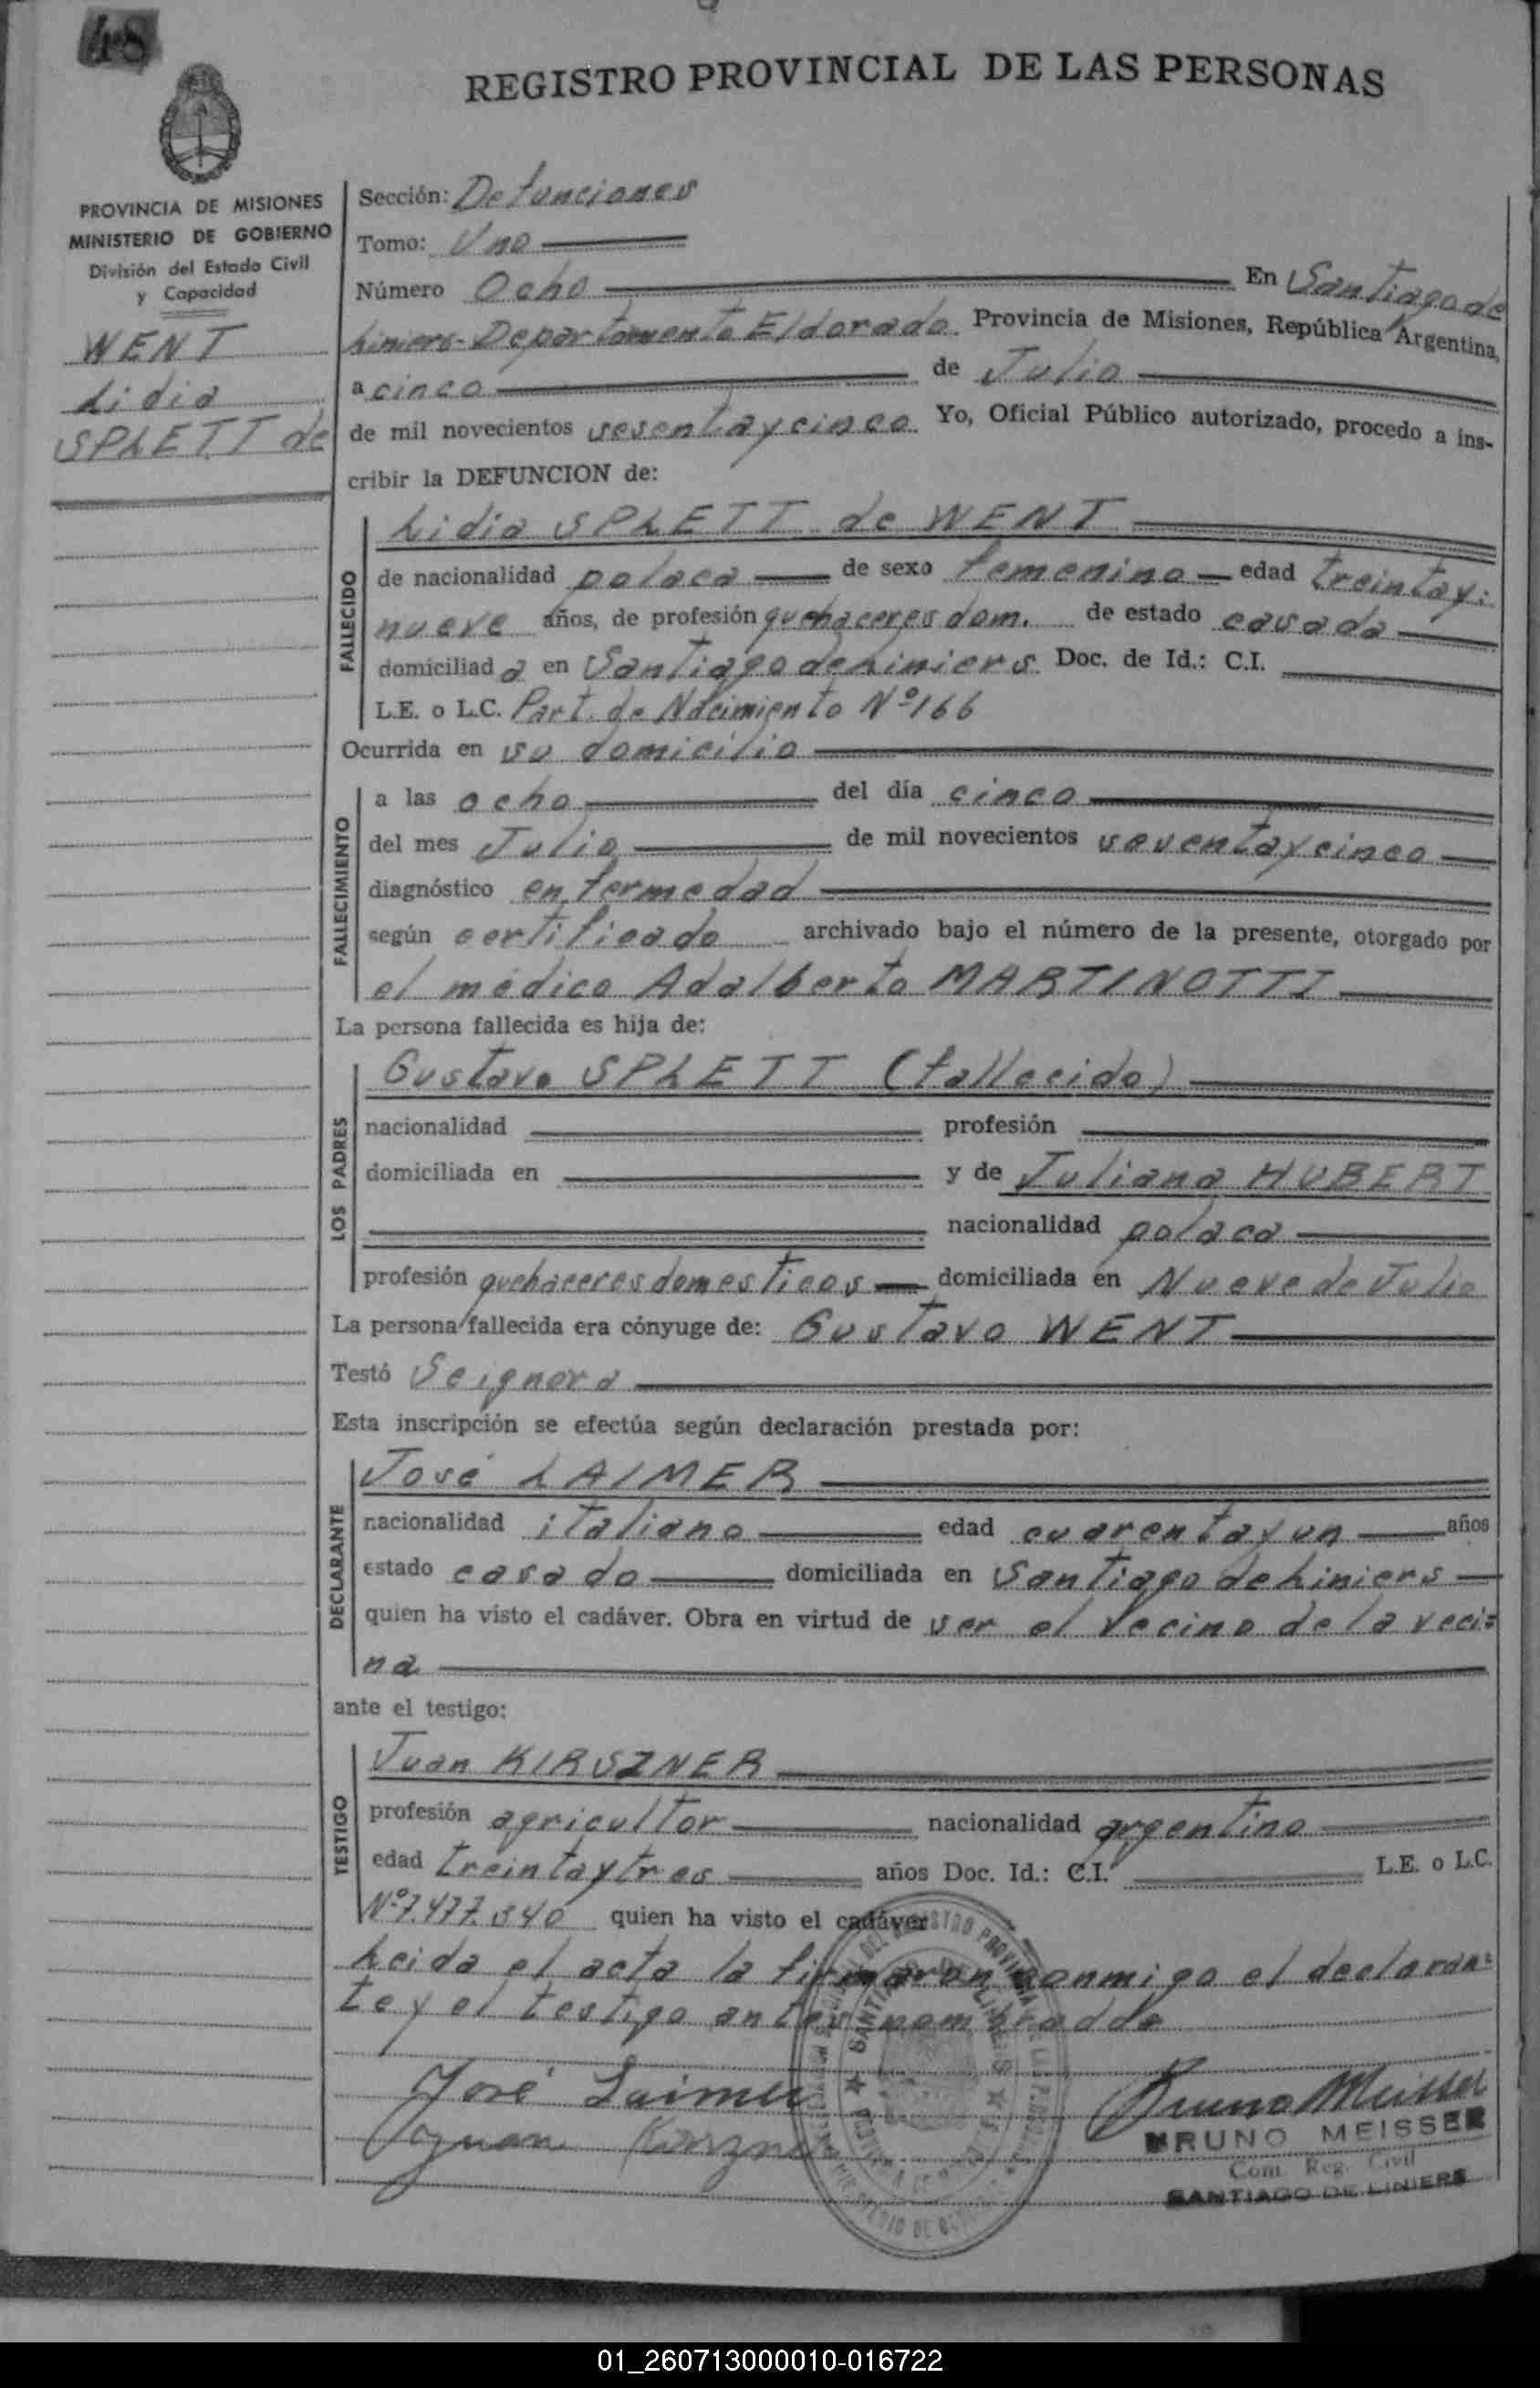 48
REGISTRO PROVINCIAL DE LAS PERSONAS
PROVINCIA DE MISIONES
MINISTERIO DE GOBIERNO
División del Estado Civil
y Capacidad
WENT
Lidia
SPLETT de
Sección: Defunciones
Tomo: Uno
Número Ocho En Santiago de
Liniers - Departamento Eldorado Provincia de Misiones, República Argentina,
a cinco de Julio
de mil novecientos sesenta y cinco Yo, Oficial Público autorizado, procedo a ins-
cribir la DEFUNCION de:
FALLECIDO
Lidia SPLETT de WENT
de nacionalidad polaca de sexo femenino edad treinta y
nueve años, de profesión quehaceres dom. de estado casada
domiciliad a en Santiago de Liniers Doc. de Id.: C.I.
L.E. o L.C. Part. de Nacimiento Nº 166
Ocurrida en su domicilio
FALLECIMIENTO
a las ocho del día cinco
del mes Julio de mil novecientos sesenta y cinco
diagnóstico enfermedad
según certificado archivado bajo el número de la presente, otorgado por
el médico Adalberto MARTINOTTI
La persona fallecida es hija de:
LOS PADRES
Gustavo SPLETT (fallecido)
nacionalidad profesión
domiciliada en y de Juliana HUBERT
nacionalidad polaca
profesión quehaceres domesticos domiciliada en Nueve de Julio
La persona fallecida era cónyuge de: Gustavo WENT
Testó Se ignora
Esta inscripción se efectúa según declaración prestada por:
DECLARANTE
José LAIMER
nacionalidad italiano edad cuarenta y un años
estado casado domiciliada en Santiago de Liniers
quien ha visto el cadáver. Obra en virtud de ser el vecino de la veci=
na
ante el testigo:
TESTIGO
Juan KIRSZNER
profesión agricultor nacionalidad argentino
edad treinta y tres años Doc. Id.: C.I. L.E. o L.C.
Nº 7.477.340 quien ha visto el cadáver
Leida el acta la firmaron conmigo el declaran=
te y el testigo antes nombrado
José Laimer
Juan
Bruno Meisser
BRUNO MEISSER
Com. Reg. Civil
SANTIAGO DE LINIERS
01_260713000010-016722